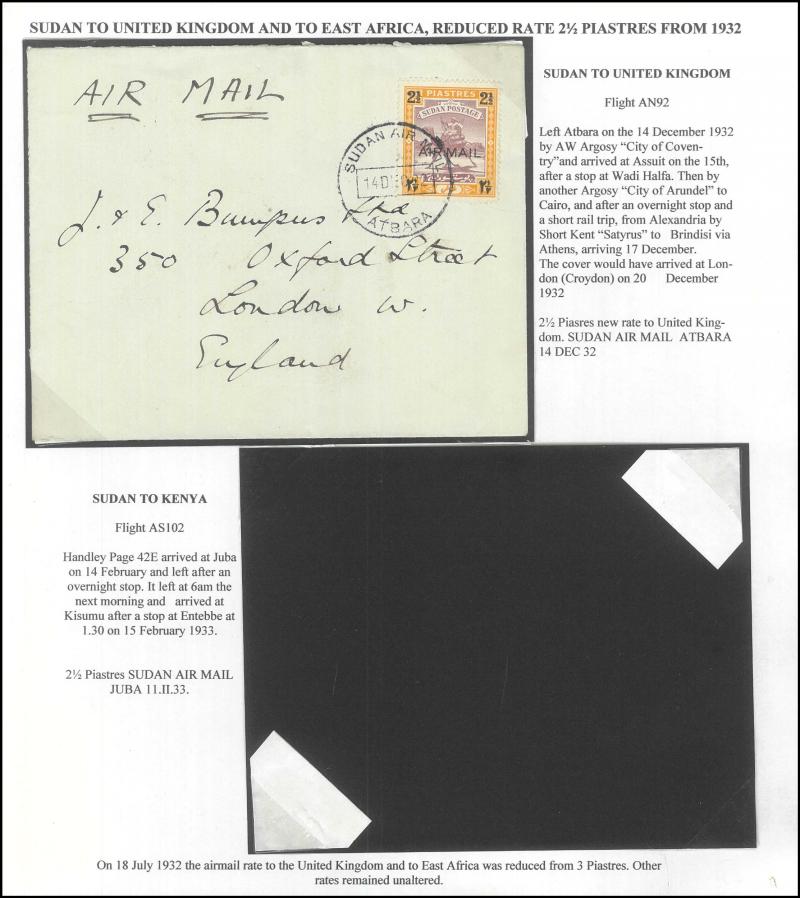 SUDAN TO UNITED KINGDOM AND TO EAST AFRICA, REDUCED RATE 2½ PIASTRES FROM 1932
AIR MAIL
PIASTRES
2½ 2½
SUDAN POSTAGE
AIR MAIL
SUDAN AIR MAIL
14 DEC 32
ATBARA
J. & E. Bumpus Ltd
350 Oxford Street
London W.
England
SUDAN TO UNITED KINGDOM
Flight AN92
Left Atbara on the 14 December 1932
by AW Argosy “City of Coven-
try”and arrived at Assuit on the 15th,
after a stop at Wadi Halfa. Then by
another Argosy “City of Arundel” to
Cairo, and after an overnight stop and
a short rail trip, from Alexandria by
Short Kent “Satyrus” to Brindisi via
Athens, arriving 17 December.
The cover would have arrived at Lon-
don (Croydon) on 20 December
1932
2½ Piasres new rate to United King-
dom. SUDAN AIR MAIL ATBARA
14 DEC 32
SUDAN TO KENYA
Flight AS102
Handley Page 42E arrived at Juba
on 14 February and left after an
overnight stop. It left at 6am the
next morning and arrived at
Kisumu after a stop at Entebbe at
1.30 on 15 February 1933.
2½ Piastres SUDAN AIR MAIL
JUBA 11.II.33.
On 18 July 1932 the airmail rate to the United Kingdom and to East Africa was reduced from 3 Piastres. Other
rates remained unaltered.